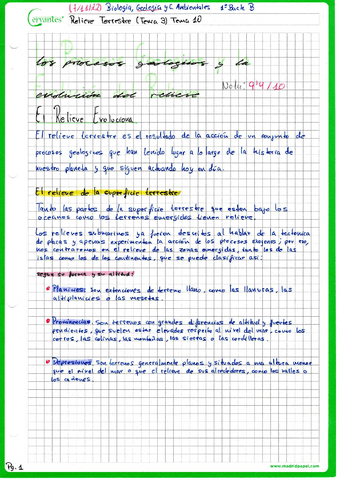 (7/2/2022) Biología, Geología y C. Ambientales 1º Bach B
Cervantes Relieve Terrestre (Tema 3) Tema 10
los procesos geológicos y la
evolución del relieve
Nota: 9'4/10
El Relieve Evoluciona
El relieve terrestre es el resultado de la acción de un conjunto de
procesos geológicos que han tenido lugar a lo largo de la historia de
nuestro planeta y que siguen actuando hoy en día.
El relieve de la superficie terrestre
Tanto las partes de la superficie terrestre que están bajo los
océanos como los terrenos emergidos tienen relieve.
Los relieves submarinos ya fueron descritos al hablar de la tectónica
de placas y apenas experimentan la acción de los procesos exógenos; por eso,
nos centraremos en el relieve de las zonas emergidas, tanto las de las
islas como las de los continentes, que se puede clasificar así:
según su forma y su altitud:
Planicies: Son extensiones de terreno llano, como las llanuras, las
altiplanicies o las mesetas.
Prominencias: Son terrenos con grandes diferencias de altitud y fuertes
pendientes, que suelen estar elevados respecto al nivel del mar, como los
cerros, las colinas, las montañas, las sierras o las cordilleras.
Depresiones: Son terrenos generalmente planos y situados a una altura menor
que el nivel del mar o que el relieve de sus alrededores, como los valles o
los cañones.
Pg. 1
www.madridpapel.com